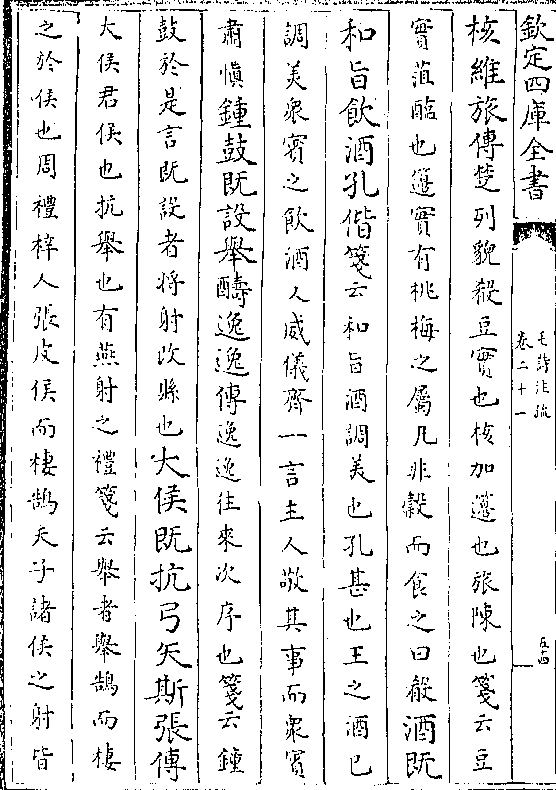 欽定四庫全書
毛詩注疏
卷二十一
五十四
核維旅傳楚列貌殽豆實也核加籩也旅陳也箋云豆
實菹醢也籩實有桃梅之屬凡非穀而食之曰殽酒既
和旨飲酒孔偕箋云和旨酒調美也孔甚也王之酒已
調美衆賓之飲酒人威儀齊一言主人敬其事而衆賓
肅慎鍾鼓既設舉醻逸逸傳逸逸往來次序也箋云鍾
鼓於是言既設者將射改縣也大侯既抗弓矢斯張傳
大侯君侯也抗舉也有燕射之禮箋云舉者舉鵠而棲
之於侯也周禮梓人張皮侯而棲鵠天子諸侯之射皆